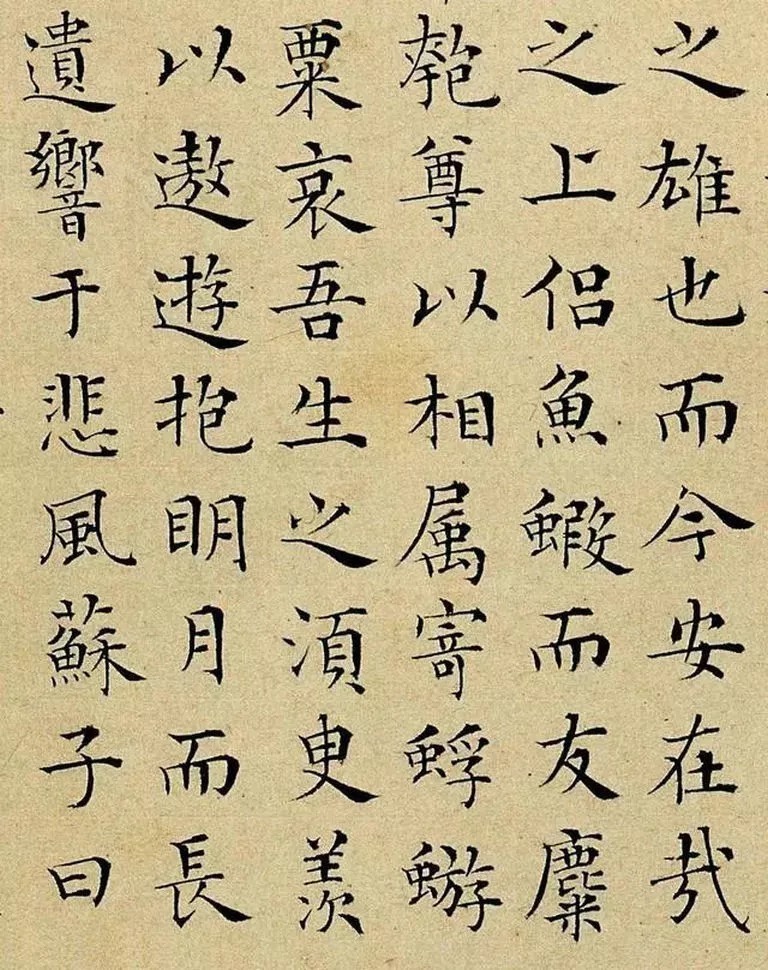 之雄也而今安在哉
之上侣魚蝦而友麋
匏尊以相属寄蜉蝣
粟哀吾生之須臾羨
以遨遊抱明月而長
遺響于悲風蘇子曰